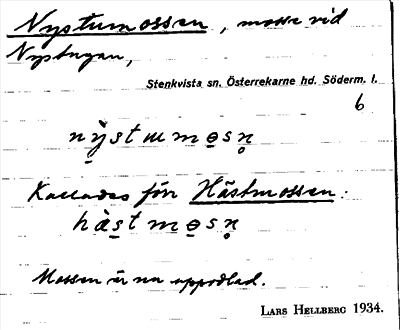 Nystumossen, mosse vid
Nystugan,
Stenkvista sn. Österrekarne hd. Söderm. l.
6
nỳstumosn̥
Kallades förr Hästmossen:
hàstmosn̥
Mossen är nu uppodlad.
LARS HELLBERG 1934.